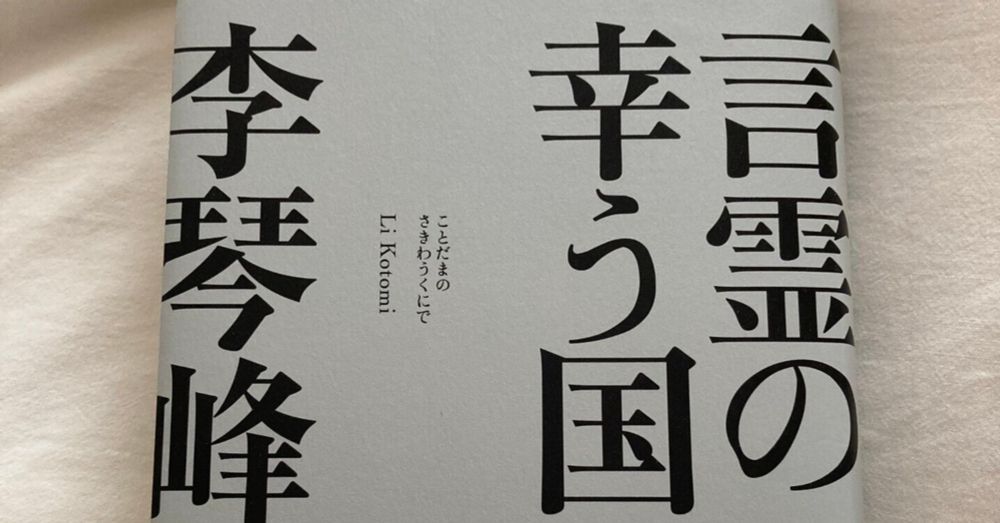 言霊の
幸う国
ことだまの
さきわうくにで
Li Kotomi
李琴峰